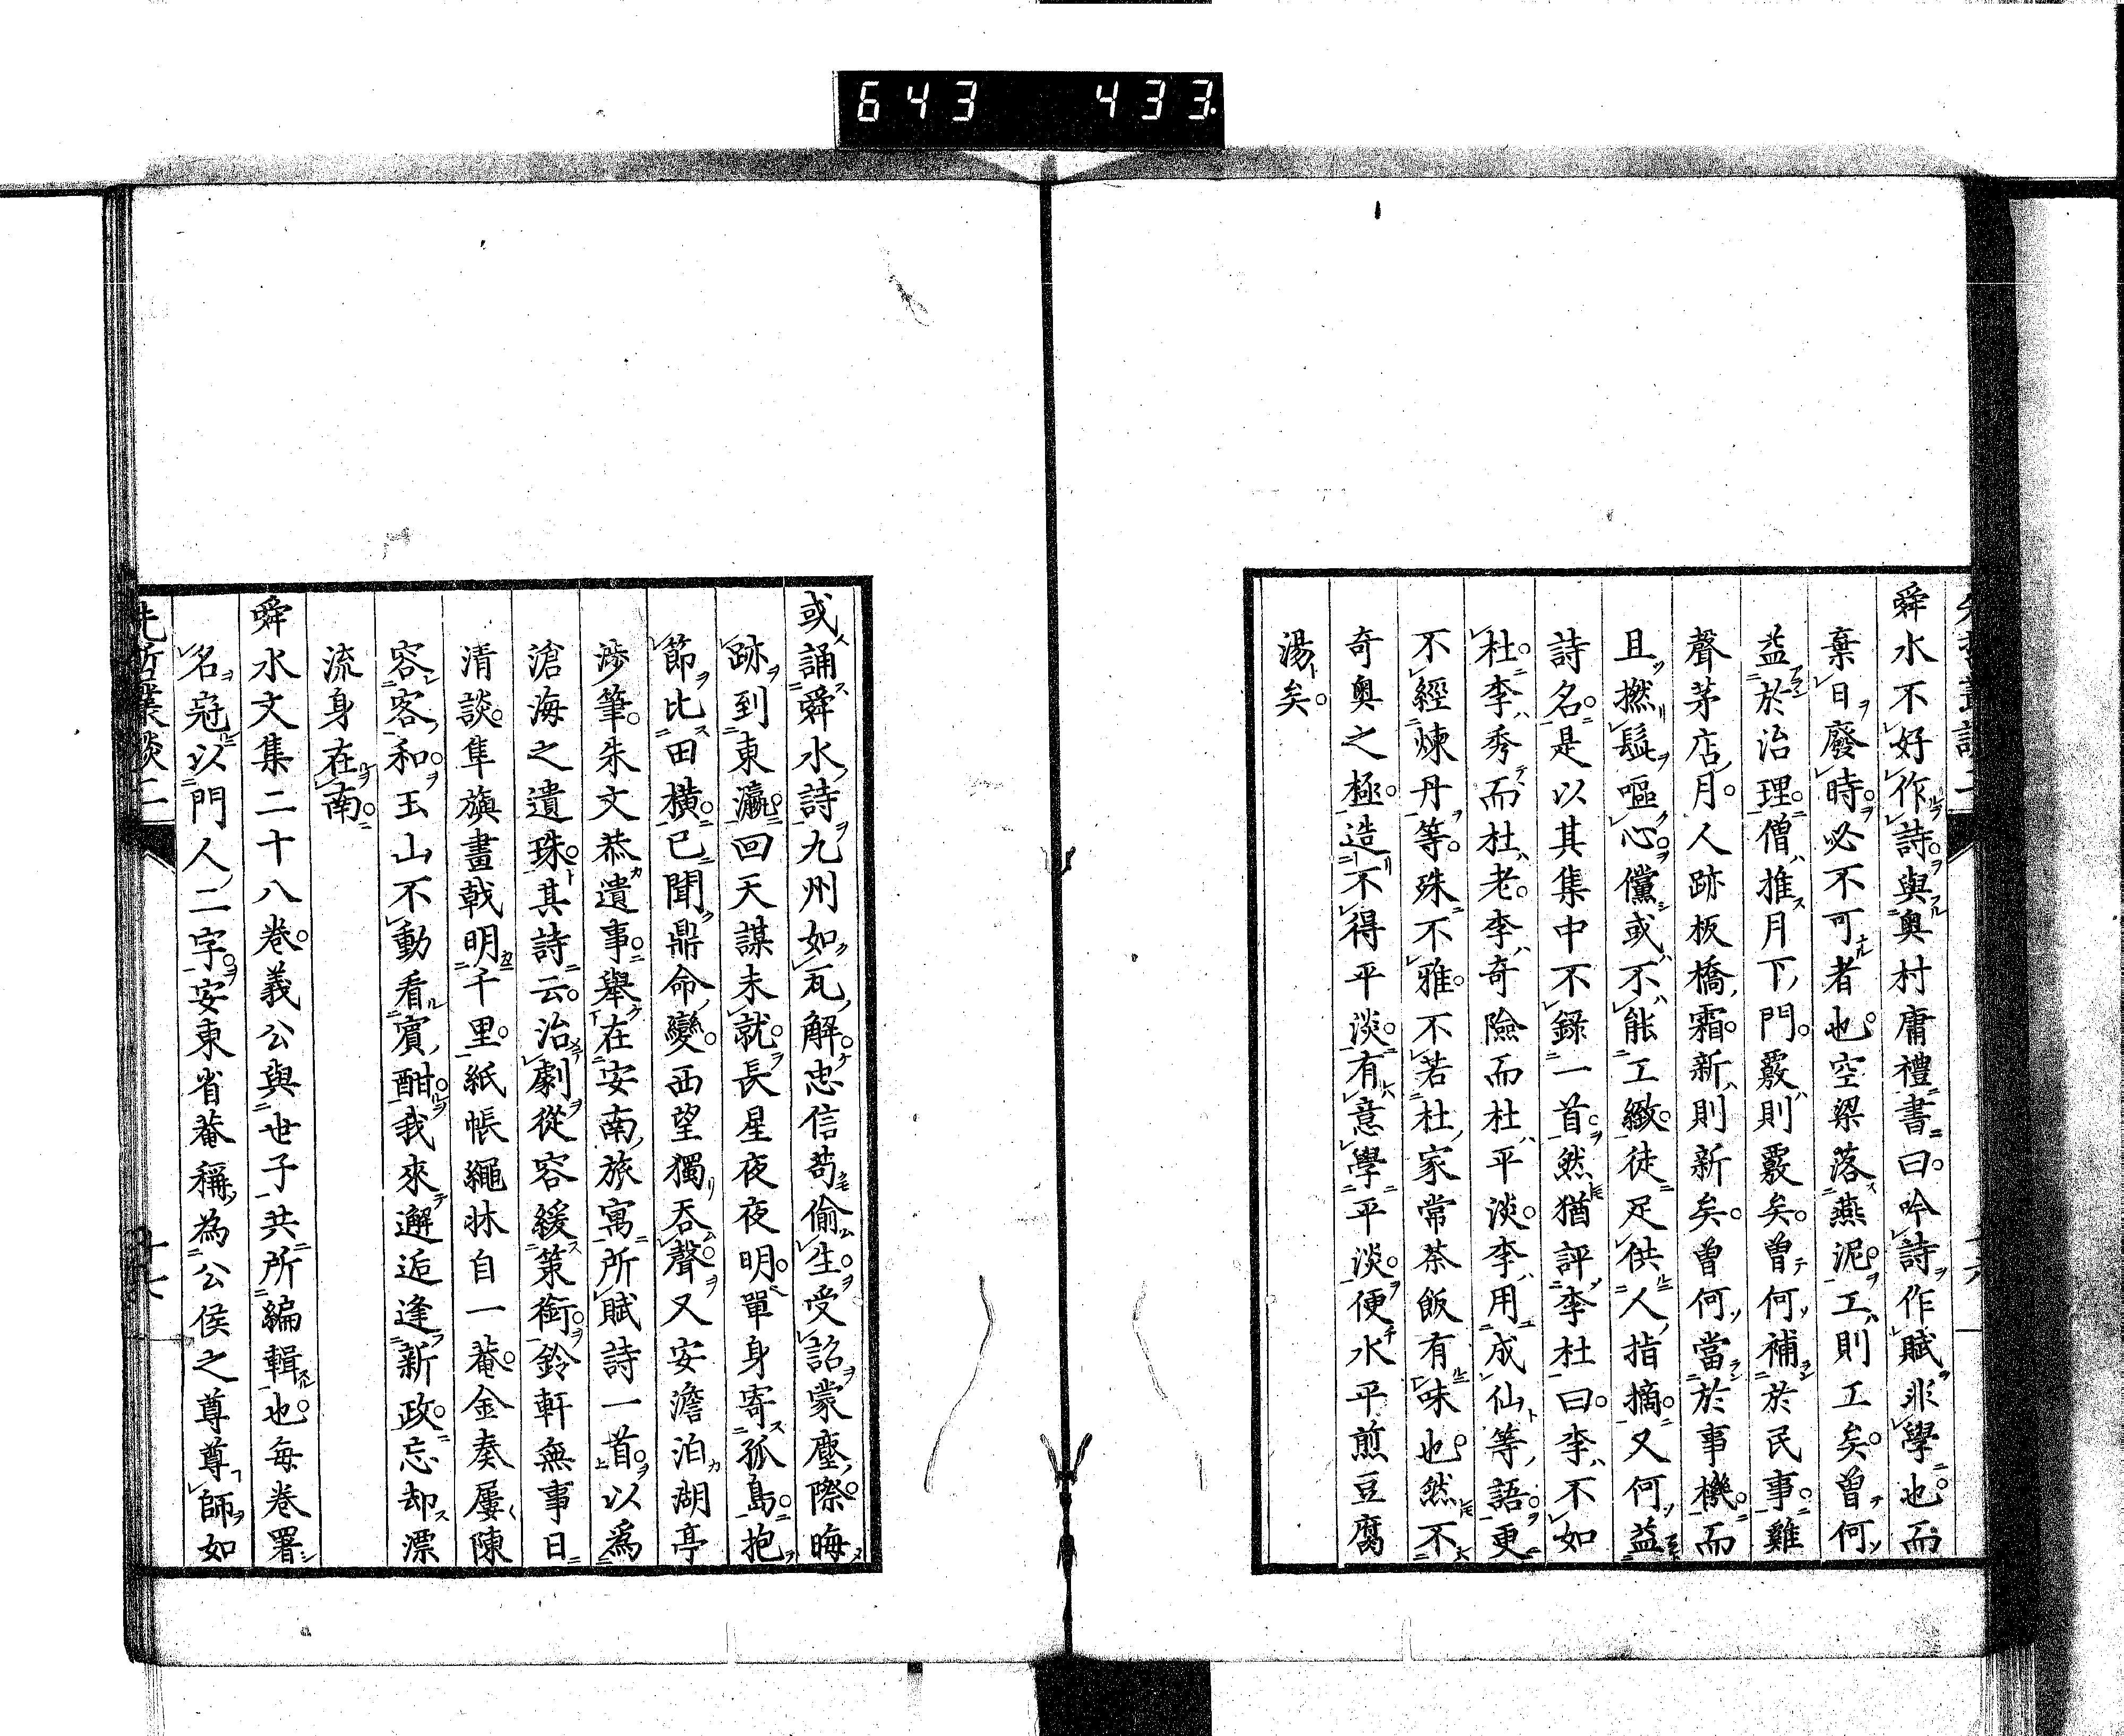 643 433
舜水不好作詩與奧村庸禮書曰吟詩作賦非學也而
棄日廢時必不可者也空梁落燕泥工則工矣曾何
益於治理僧推月下門覈則覈矣曾何補於民事雞
聲茅店月人跡板橋霜新則新矣曾何當於事機而
且撚髭嘔心儻或不能工緻徒足供人指摘又何益
詩名是以其集中不錄一首然猶評李杜曰李不如
杜李秀而杜老李奇險而杜平淡李用成仙等語更
不經煉丹等殊不雅不若杜家常茶飯有味也然不
奇奧之極造不得平淡有意學平淡便水平煎豆腐
湯矣
或誦舜水詩九州如瓦解忠信苟偷生受詔蒙塵際晦
跡到東瀛回天謀未就長星夜夜明單身寄孤島抱
節比田橫已聞鼎命變西望獨吞聲又安澹泊湖亭
渉筆朱文恭遺事舉在安南旅寓所賦詩一首以爲
滄海之遺珠其詩云治劇從容緩策銜鈴軒無事日
清談隼旟畫戟明千里紙帳繩牀自一菴金奏屢陳
容客和玉山不動看賓酣我來邂逅逢新政忘却漂
流身在南
舜水文集二十八卷義公與世子共所編輯也每卷署
名冠以門人二字安東省菴稱為公侯之尊尊師如
先哲叢談二